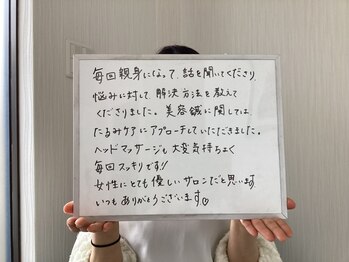 毎回親身になって、話を聞いてくださり
悩みに対して、解決方法を教えて
くださりました。美容鍼に関しては
たるみケアにアプローチしていただきました。
ヘッドマッサージも大変気持ちよく
毎回スッキリです!!
女性にとても優しいサロンだと思います
いつもありがとうございます♡